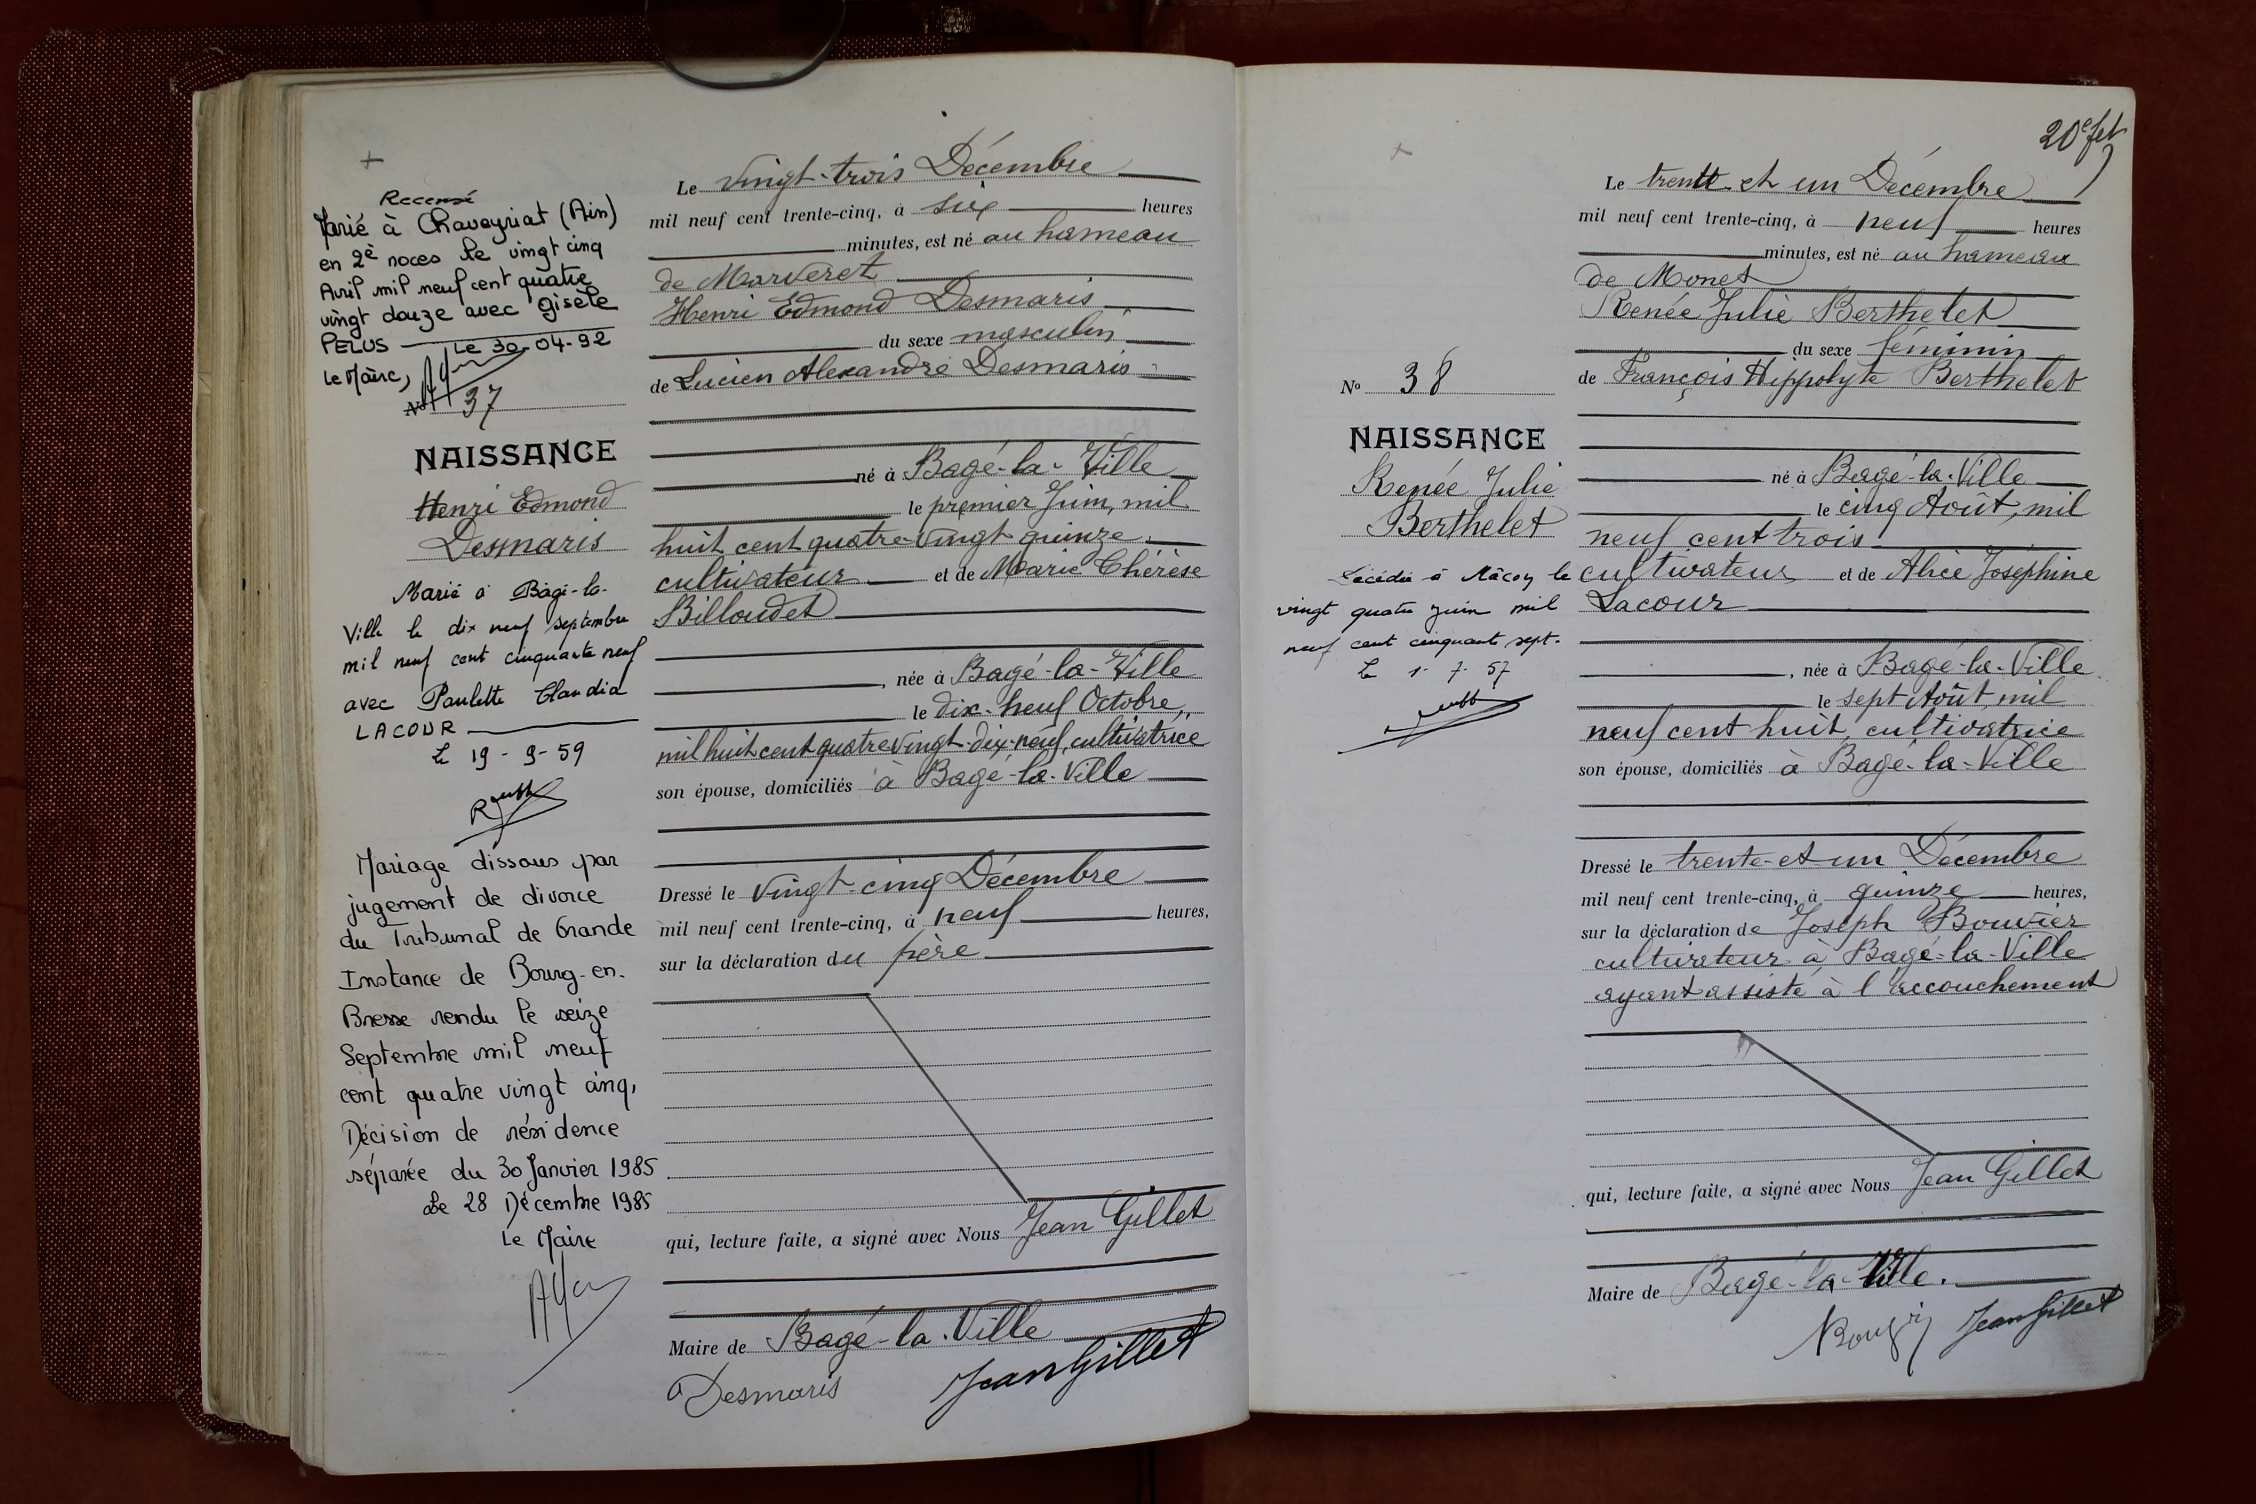 Recensé
Marié à Chaveyriat (Ain)
en 2è noces le vingt cinq
Avril mil neuf cent quatre
vingt douze avec Gisèle
PELUS Le 30-04-92
Le Maire,
N° 37
NAISSANCE
Henri Edmond
Desmaris
Marié à Bâgé-la-
Ville le dix neuf septembre
mil neuf cent cinquante neuf
avec Paulette Claudia
LACOUR
le 19-9-59
Mariage dissous par
jugement de divorce
du Tribunal de Grande
Instance de Bourg-en-
Bresse rendu le seize
Septembre mil neuf
cent quatre vingt cinq,
Décision de résidence
séparée du 30 Janvier 1985
Le 28 Décembre 1985
Le Maire
Le vingt-trois Décembre
mil neuf cent trente-cinq, à six heures
minutes, est né au hameau
de Marveret
Henri Edmond Desmaris
du sexe masculin
de Lucien Alexandre Desmaris
né à Bagé-la-Ville
le premier Juin, mil
huit cent quatre-vingt quinze
cultivateur et de Marie Thérèse
Billoudet
, née à Bagé-la-Ville
le dix-neuf Octobre,
mil huit cent quatre vingt-dix-neuf, cultivatrice
son épouse, domiciliés à Bagé-la-Ville
Dressé le vingt-cinq Décembre
mil neuf cent trente-cinq, à neuf heures,
sur la déclaration du père
qui, lecture faite, a signé avec Nous Jean Gillet
Maire de Bagé-la-Ville
Desmaris Jean Gillet
20e fet
N° 38
NAISSANCE
Renée Julie
Berthelet
Décédée à Mâcon le
vingt quatre juin mil
neuf cent cinquante sept.
Le 1-7-57
Le trente et un Décembre
mil neuf cent trente-cinq, à neuf heures
minutes, est né au hameau
de Monet
Renée Julie Berthelet
du sexe féminin
de François Hippolyte Berthelet
né à Bagé-la-Ville
le cinq Août, mil
neuf cent trois
cultivateur et de Alice Joséphine
Lacour
, née à Bagé-la-Ville
le sept Août, mil
neuf cent huit, cultivatrice
son épouse, domiciliés à Bagé-la-Ville
Dressé le trente-et-un Décembre
mil neuf cent trente-cinq, à quinze heures,
sur la déclaration de Joseph Bouvier
cultivateur à Bagé-la-Ville
ayant assisté à l'accouchement
qui, lecture faite, a signé avec Nous Jean Gillet
Maire de Bagé-la-Ville.
Jean Gillet